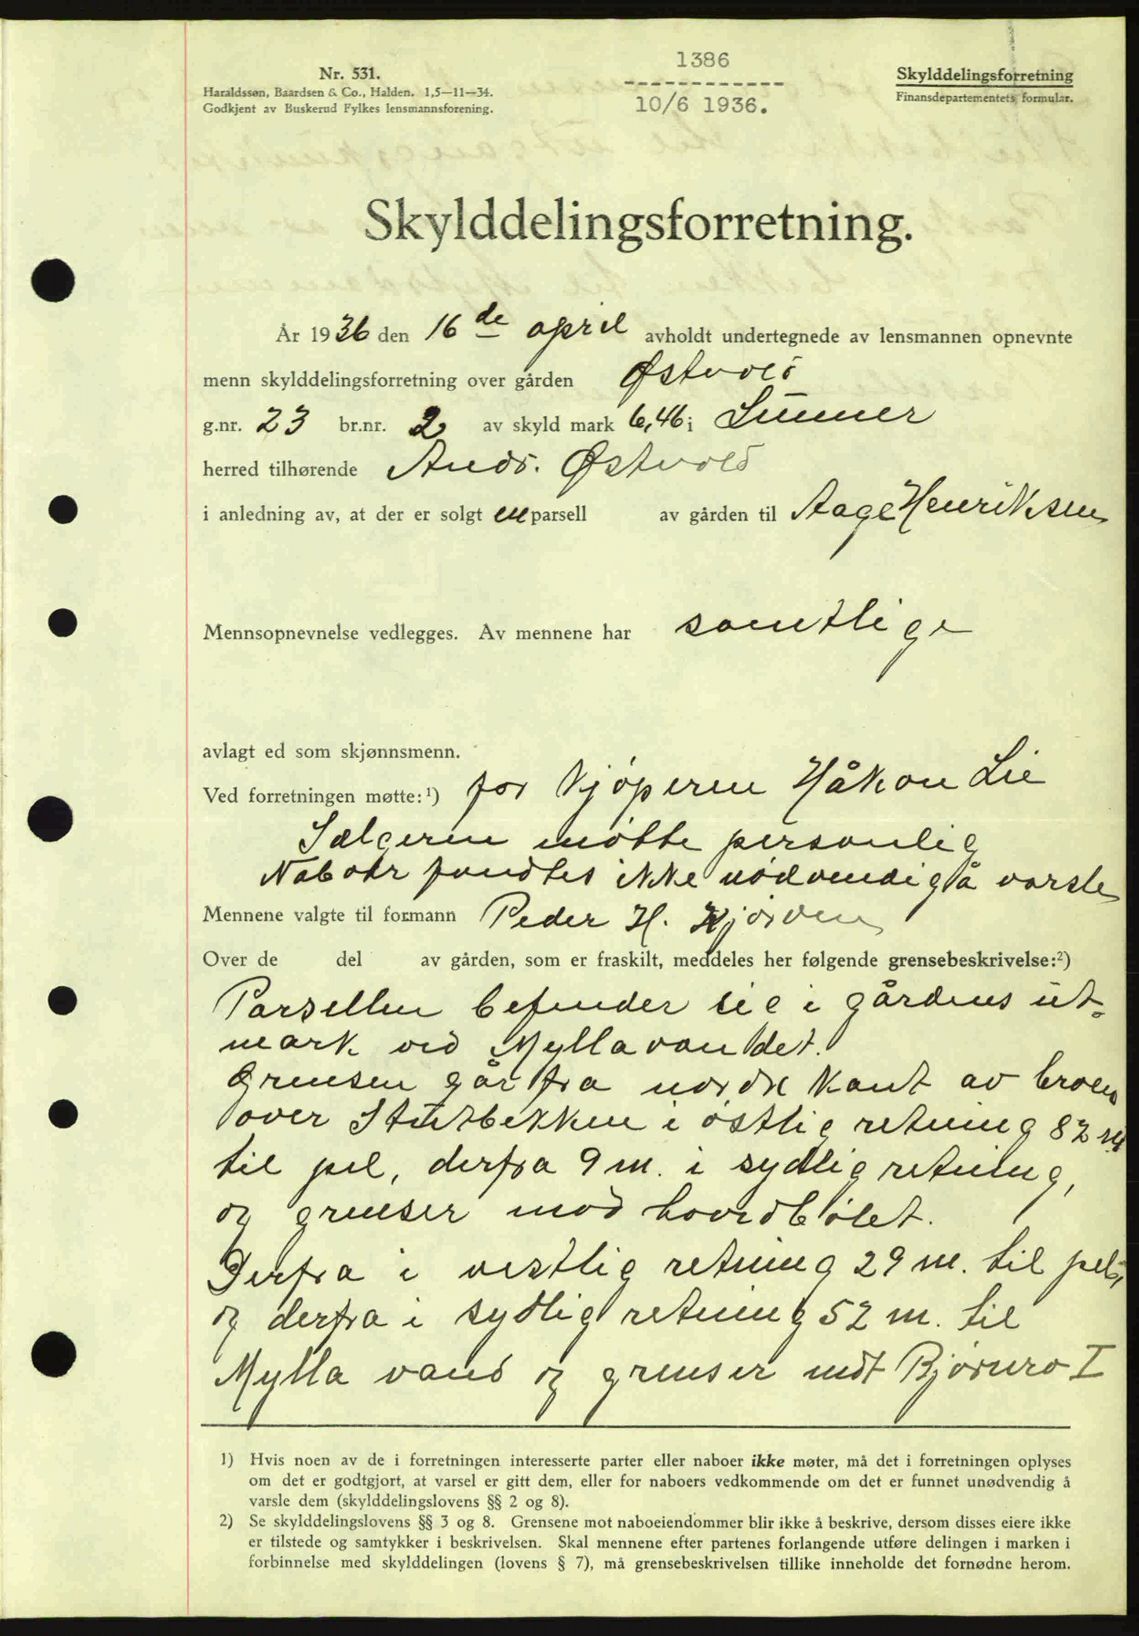 1386
10/6 1936.
Nr. 531.
Haraldssøn, Baardsen & Co., Halden. 1,5—11—34.
Godkjent av Buskerud Fylkes lensmannsforening.
Skylddelingsforretning
Finansdepartementets formular.
Skylddelingsforretning.
År 1936 den 16de april avholdt undertegnede av lensmannen opnevnte
menn skylddelingsforretning over gården Østvold
g.nr. 23 br.nr. 2 av skyld mark 6,46 i Lunner
herred tilhørende Ands. Østvold
i anledning av, at der er solgt en parsell av gården til Aage Henriksen
Mennsopnevnelse vedlegges. Av mennene har samtlige
avlagt ed som skjønnsmenn.
Ved forretningen møtte:¹) for kjøperen Håkon Lie
Sælgeren møtte personlig
Naboer fundtes ikke nødvendig å varsle
Mennene valgte til formann Peder H. Kjørven
Over de del av gården, som er fraskilt, meddeles her følgende grensebeskrivelse:²)
Parsellen befinder sig i gårdens ut-
mark ved Myllavandet.
Grensen går fra nordre kant av broen
over Stutbekken i østlig retning 82 m
til pel, derfra 9 m. i sydlig retning,
og grenser mod hovedbølet.
Derfra i vestlig retning 29 m. til pel,
og derfra i sydlig retning 52 m. til
Mylla vand og grenser mot Bjørnro I
1) Hvis noen av de i forretningen interesserte parter eller naboer ikke møter, må det i forretningen oplyses
om det er godtgjort, at varsel er gitt dem, eller for naboers vedkommende om det er funnet unødvendig å
varsle dem (skylddelingslovens §§ 2 og 8).
2) Se skylddelingslovens §§ 3 og 8. Grensene mot naboeiendommer blir ikke å beskrive, dersom disses eiere ikke
er tilstede og samtykker i beskrivelsen. Skal mennene efter partenes forlangende utføre delingen i marken i
forbinnelse med skylddelingen (lovens § 7), må grensebeskrivelsen tillike inneholde det fornødne herom.